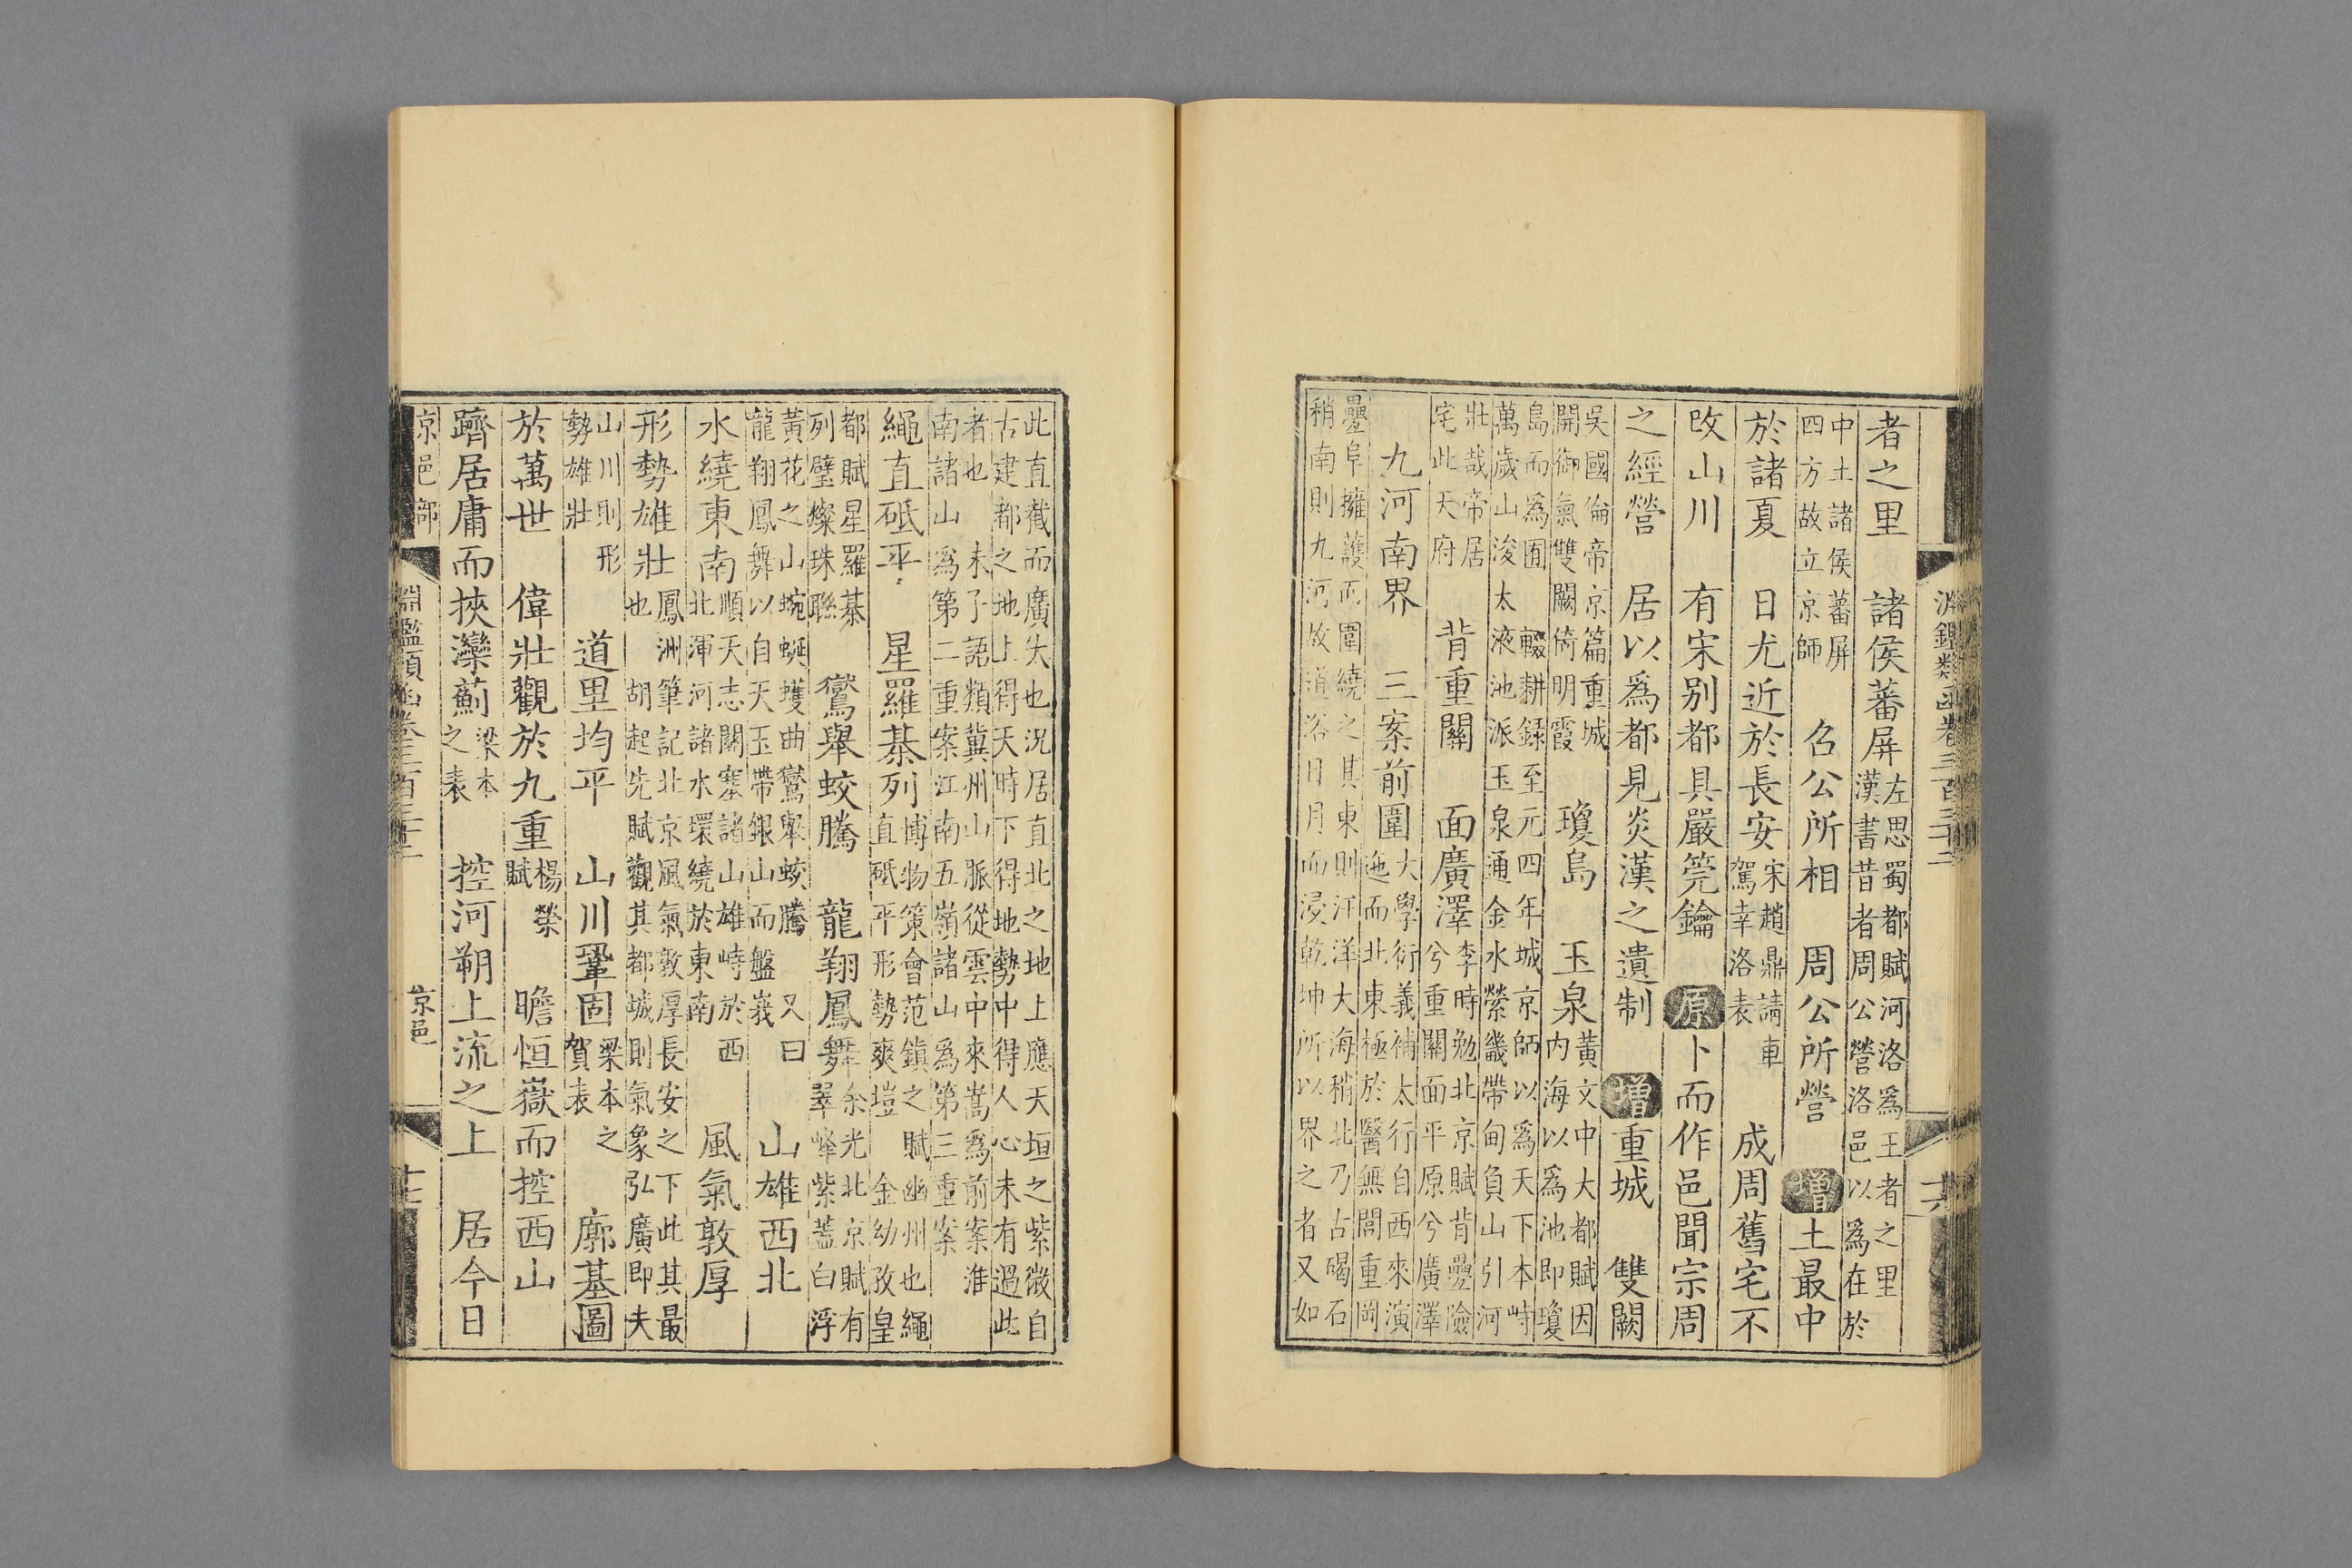 淵鑑類函卷三百三十三
十六
者之里 諸侯蕃屏左思蜀都賦河洛爲王者之里
漢書昔者周公營洛邑以爲在於
中土諸侯蕃屏
四方故立京師 召公所相 周公所營 增土最中
於諸夏 日尤近於長安宋趙鼎請車
駕幸洛表 成周舊宅不
改山川 有宋別都具嚴筦鑰 原卜而作邑聞宗周
之經營 居以爲都見炎漢之遺制 增重城 雙闕
吳國倫帝京篇重城
開御氣雙闕倚明霞 瓊島 玉泉黃文中大都賦因
内海以爲池即瓊
島而爲囿 輟耕録至元四年城京師以爲天下本峙
萬歲山浚太液池派玉泉通金水縈畿帶甸負山引河
壯哉帝居
宅此天府 背重關 面廣澤李時勉北京賦背疊險
兮重關面平原兮廣澤
九河南界 三案前圍大學衍義補太行自西來演
迤而北東極於醫無閭重岡
疊阜擁護而圍繞之其東則汪洋大海稍北乃古碣石
稍南則九河故道浴日月而浸乾坤所以界之者又如
此直截而廣大也況居直北之地上應天垣之紫微自
古建都之地上得天時下得地勢中得人心未有過此
者也 朱子語類冀州山脈從雲中來嵩爲前案淮
南諸山爲第二重案江南五嶺諸山爲第三重案
繩直砥平 星羅棊列博物策會范鎮之賦幽州也繩
直砥平形勢爽塏 金幼孜皇
都賦星羅棊
列璧燦珠聯 鸞舉蛟騰 龍翔鳳舞余光北京賦有
翠峰紫蓋白浮
黃花之山蜿蜒蠖曲鸞舉蛟騰 又曰
龍翔鳳舞以自天玉帶銀山而盤峩 山雄西北
水繞東南順天志關塞諸山雄峙於西
北渾河諸水環繞於東南 風氣敦厚
形勢雄壯鳳洲筆記北京風氣敦厚長安之下此其最
也 胡起先賦觀其都城則氣象弘廣即夫
山川則形
勢雄壯 道里均平 山川鞏固梁本之
賀表 廓基圖
於萬世 偉壯觀於九重楊榮
賦 瞻恒嶽而控西山
躋居庸而挾灤薊梁本
之表 控河朔上流之上 居今日
京邑部
淵鑑類函卷三百三十三
京邑
十七